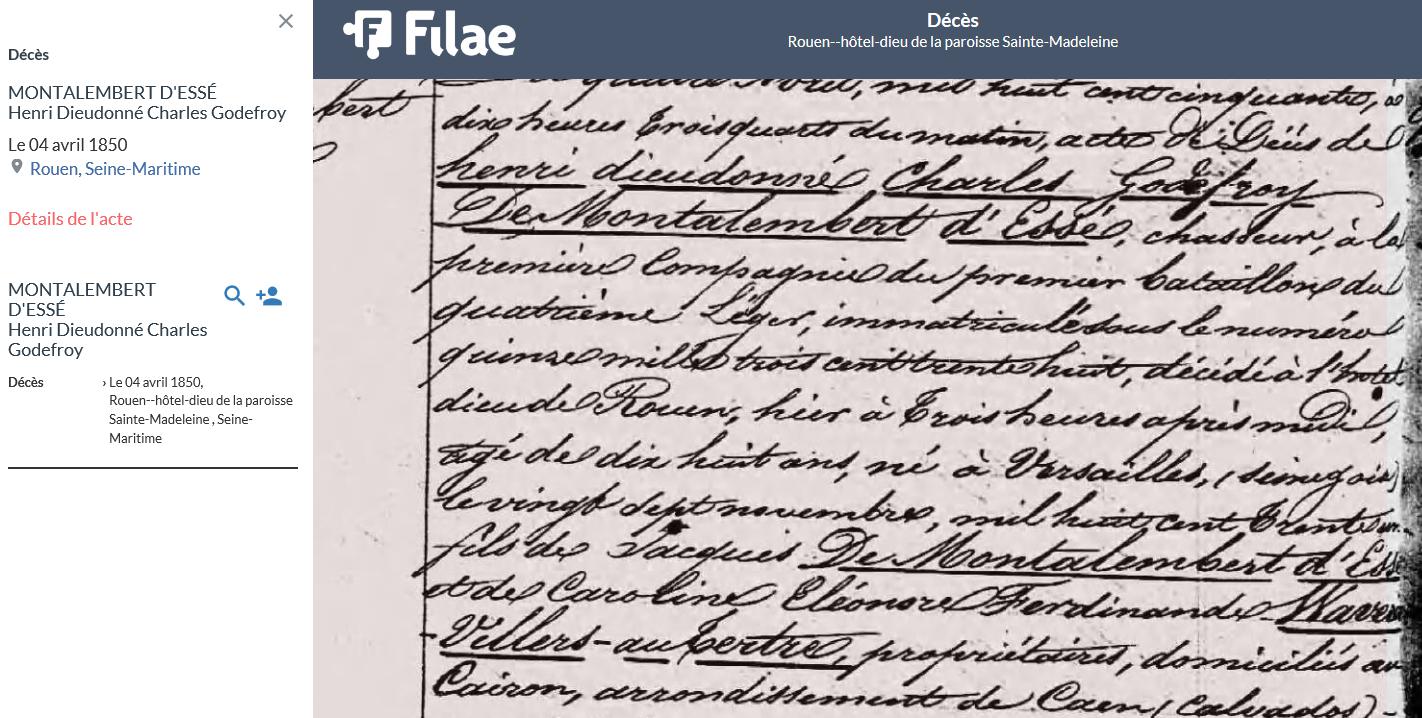 Décès
MONTALEMBERT D'ESSÉ
Henri Dieudonné Charles Godefroy
Le 04 avril 1850
Rouen, Seine-Maritime
Détails de l'acte
MONTALEMBERT
D'ESSÉ
Henri Dieudonné Charles
Godefroy
Décès
› Le 04 avril 1850,
Rouen--hôtel-dieu de la paroisse
Sainte-Madeleine , Seine-
Maritime
Filae
Décès
Rouen--hôtel-dieu de la paroisse Sainte-Madeleine
bert
quatre Avril, mil huit cent cinquante, à
dix heures trois quarts du matin, acte de Décès de
henri dieudonné Charles Godefroy
De Montalembert d'Essé, chasseur, à la
première Compagnie du premier bataillon du
quatrième Léger, immatriculé sous le numéro
quinze mille trois cent trente huit, décédé à l'hotel
dieu de Rouen, hier à trois heures après midi,
agé de dix huit ans, né à Versailles, (seine & oise)
le vingt sept novembre, mil huit cent trente un
fils de Jacques De Montalembert d'Essé
et de Caroline Eléonore Ferdinande
Villers-au-tertre, propriétaires, domiciliés au
Cairon, arrondissement de Caen (Calvados) -